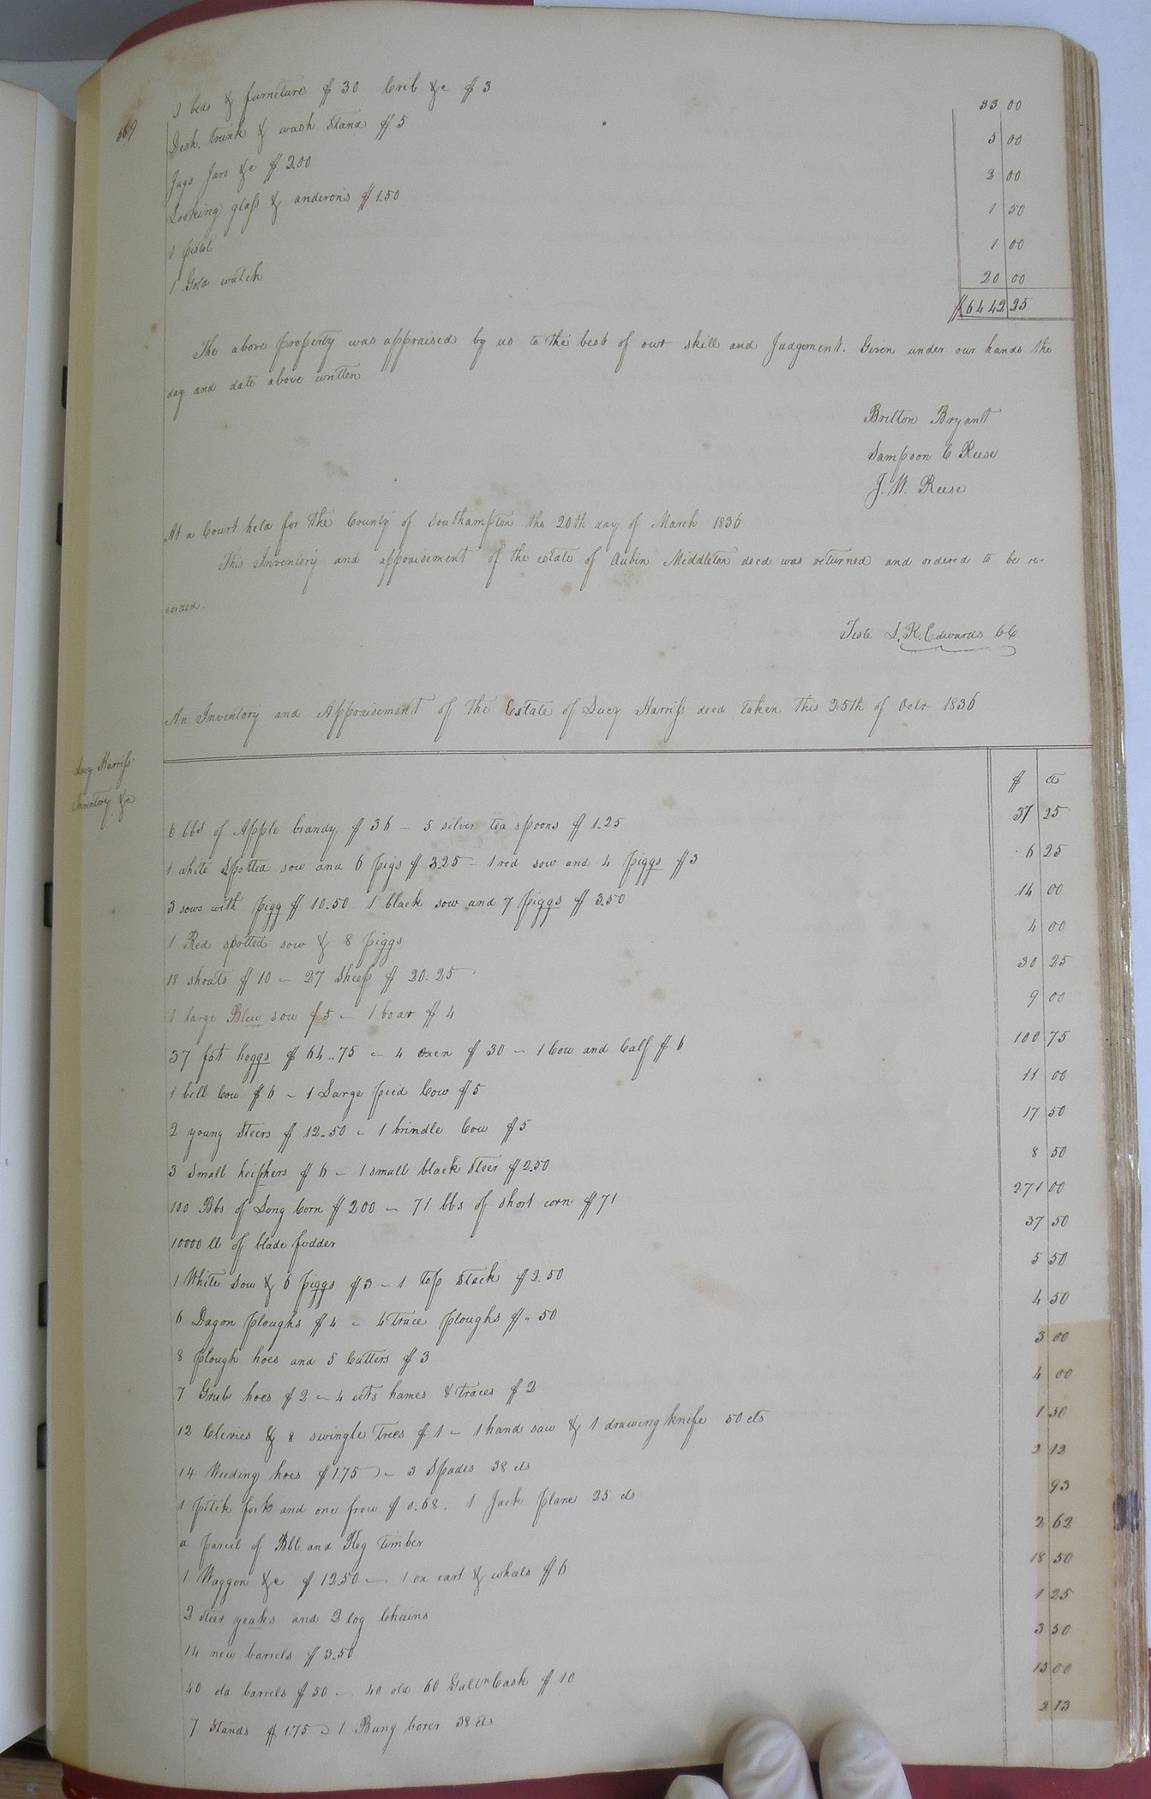 589
1 bed & furniture $30 Crib &c $3 33 00
Desk, trunk & wash Stand $5 5 00
Jugs Jars &c $2.00 2 00
Looking glass & andirons $1.50 1 50
1 pistol 1 00
1 Gold watch 20 00
$6442 25
The above property was appraised by us to the best of our skill and Judgement. Given under our hands the
day and date above written
Britton Bryant
Sampson C Reese
J. W. Reese
At a Court held for the County of Southampton the 20th day of March 1836
This Inventory and appraisement of the estate of Aubin Middleton decd was returned and ordered to be re-
corded.
Teste L. R. Edwards CC
An Inventory and Appraisement of the Estate of Lucy Harriss decd taken this 25th of Octr 1836
Lucy Harriss
Inventory &c
$ cts
6 bbs of Apple brandy $36 – 5 silver tea spoons $1.25 37 25
1 white Spotted sow and 6 pigs $3.25 – 1 red sow and 4 piggs $3 6 25
3 sows with pigg $10.50 1 black sow and 7 piggs $3.50 14 00
1 Red spotted sow & 8 piggs 4 00
18 shoats $10 – 27 Sheep $20.25 30 25
1 large Blew sow $5 – 1 boar $4 9 00
37 fat hoggs $64.75 – 4 oxen $30 – 1 Cow and Calf $6 100 75
1 bell Cow $6 – 1 Large pied Cow $5 11 00
2 young Steers $12.50 – 1 brindle Cow $5 17 50
3 Small heiphers $6 – 1 small black Steer $2.50 8 50
100 Bbs of Long Corn $200 – 71 bbs of short corn $71 271 00
10000 lb of blade fodder 37 50
1 White Sow & 6 piggs $3 – 1 top stack $2.50 5 50
6 Dagon ploughs $4 – 4 trace ploughs $.50 4 50
8 plough hoes and 5 Cutters $3 3 00
7 Grub hoes $2 – 4 sets hames & traces $2 4 00
12 Clevies & 8 swingle trees $1 – 1 hand saw & 1 drawing knife 50 cts 1 50
14 Weeding hoes $1.75 – 3 Spades 38 cts 2 13
1 pitch fork and one frow $0.68. 1 Jack plane 25 cts 93
a parcel of Bbl and Keg timber 2 62
1 Waggon &c $12.50 – 1 ox cart & wheels $6 18 50
2 steer yoaks and 2 log Chains 1 25
14 new barrels $3.50 3 50
40 old 60 Gall Cask $10 00
7 Stands $1.75 – 1 Bung borer 38 cts 2 13